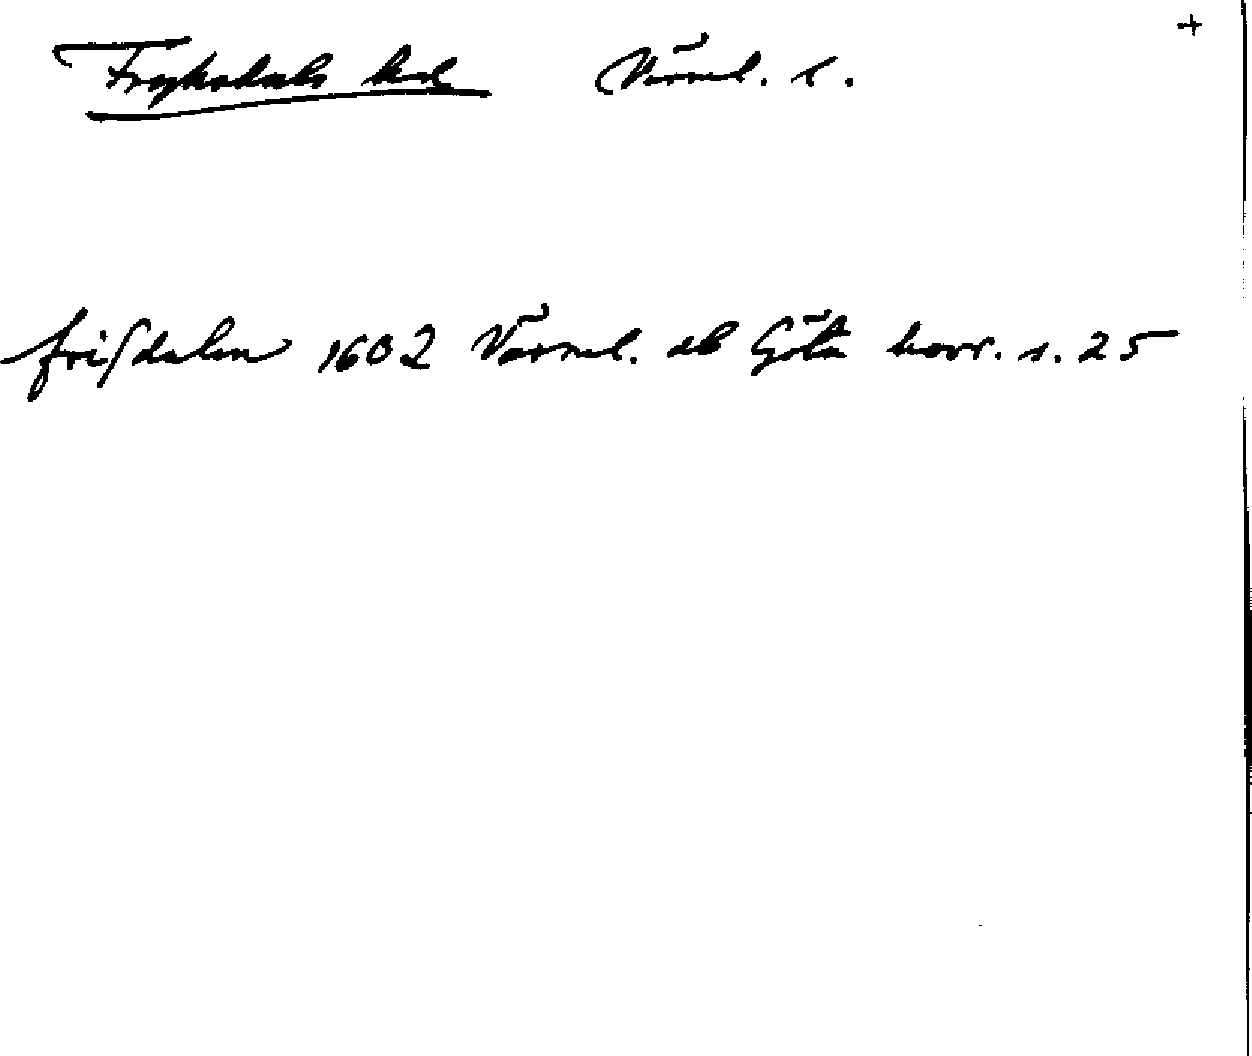 +
Fryksdals hd Värml. l.
friſdalen 1602 Värml. äb Göta hovr. s. 25